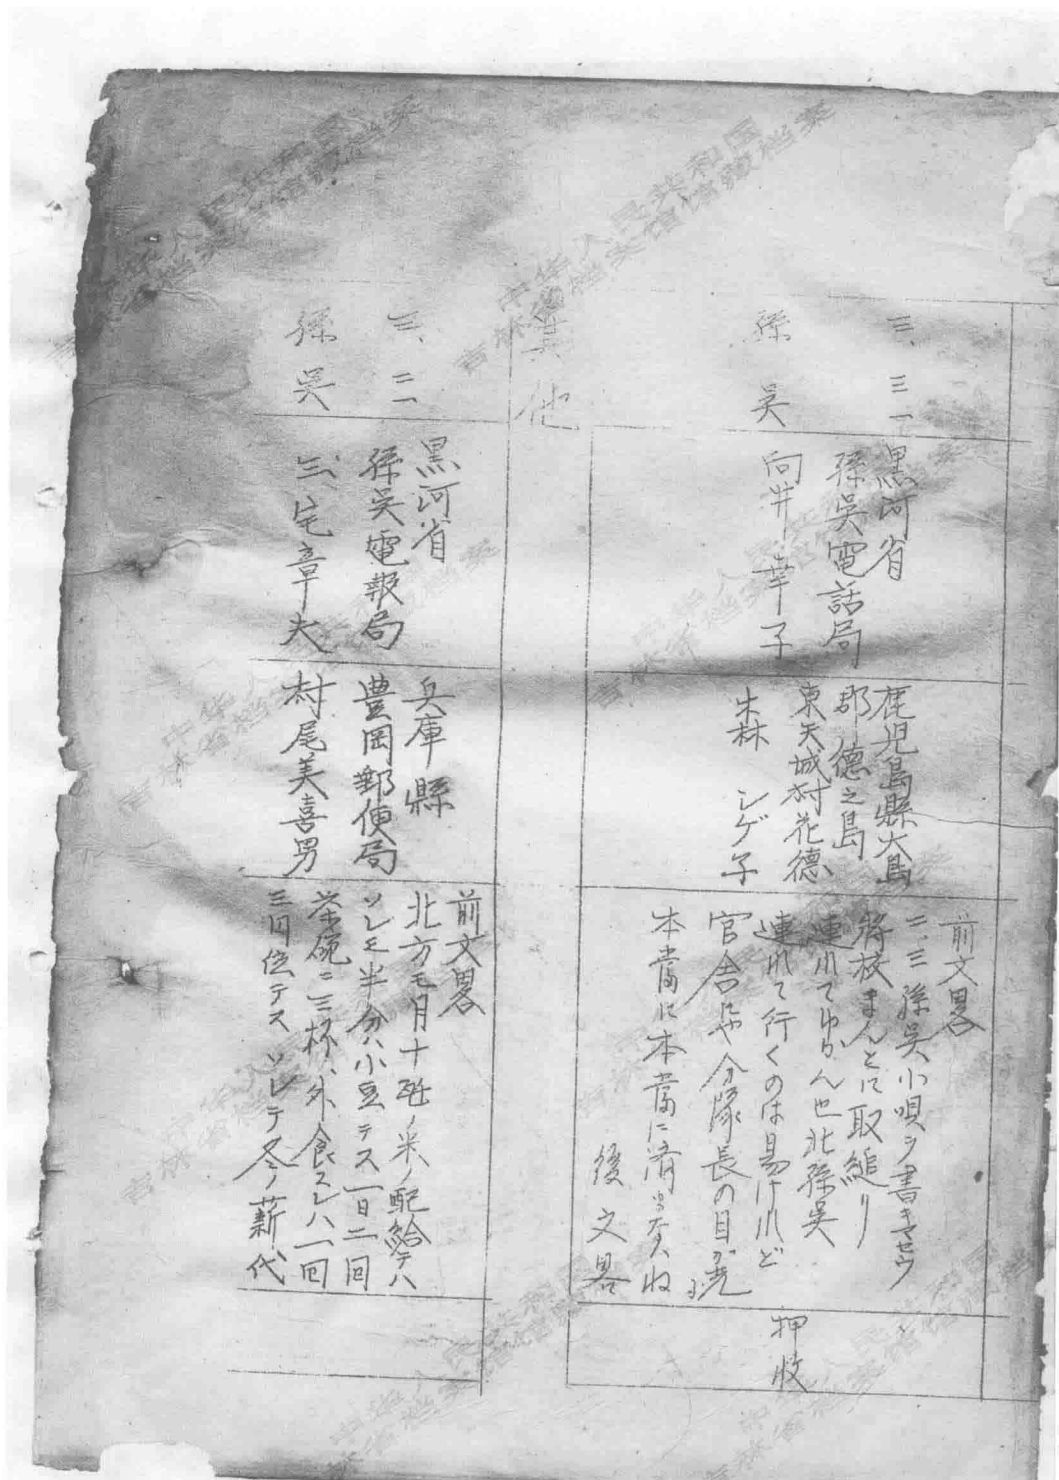 三、三一
孫吳
黒河省
孫吳電話局
向井幸子
鹿児島縣大島
郡徳之島
東天城村花徳
シゲ子
前文畧
二、三孫吳小唄ヲ書キマセウ
将校まんとに取縋り
連れてゆかんせ北孫吳
連れて行くのは易けれど
官舎にや分隊長の目が光る
本當に本當に済まないね
後文畧
押收
其他
三、二一
孫吳
黒河省
孫吳電報局
三宅章夫
兵庫縣
豊岡郵便局
村尾美喜男
前文畧
北方モ月十瓩ノ米ノ配給デハ
ソレモ半分ハ小豆デス一日二回
茶碗ニ三杯、外食スレハ一回
三円位デス ソレデ冬ノ薪代
中华人民共和国
吉林省档案馆藏档案